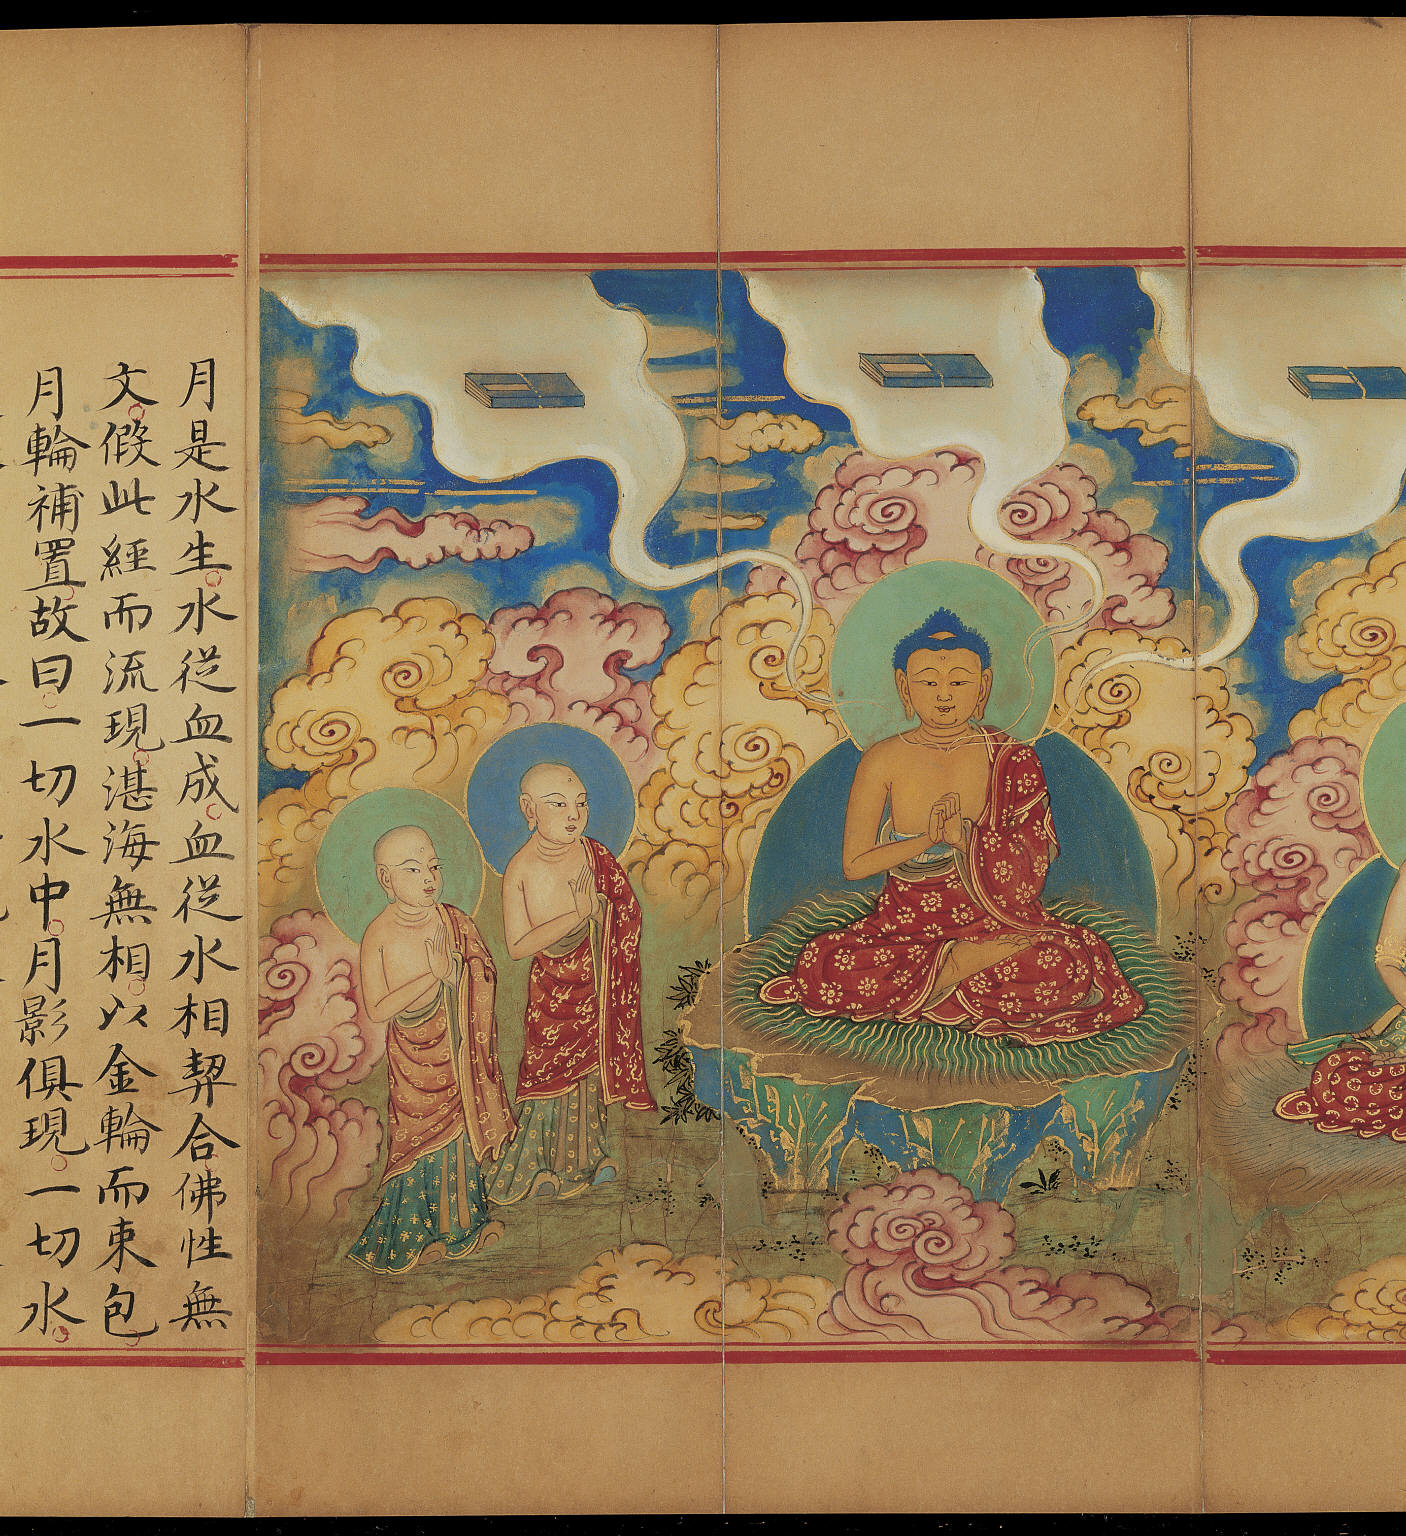 月是水生水從血成血從水相契合佛性無
文假此經而流現湛海無相以金輪而束包
月輪補置故曰一切水中月影俱現一切水